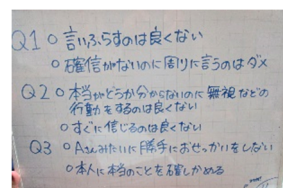 Q1 ○ 言いふらすのは良くない
○ 確信がないのに周りに言うのはダメ
Q2 ○ 本当かどうか分からないのに無視などの
行動をするのは良くない
○ すぐに信じるのは良くない
Q3 ○ Aさんみたいに勝手におせっかいをしない
○ 本人に本当のことを確かめる